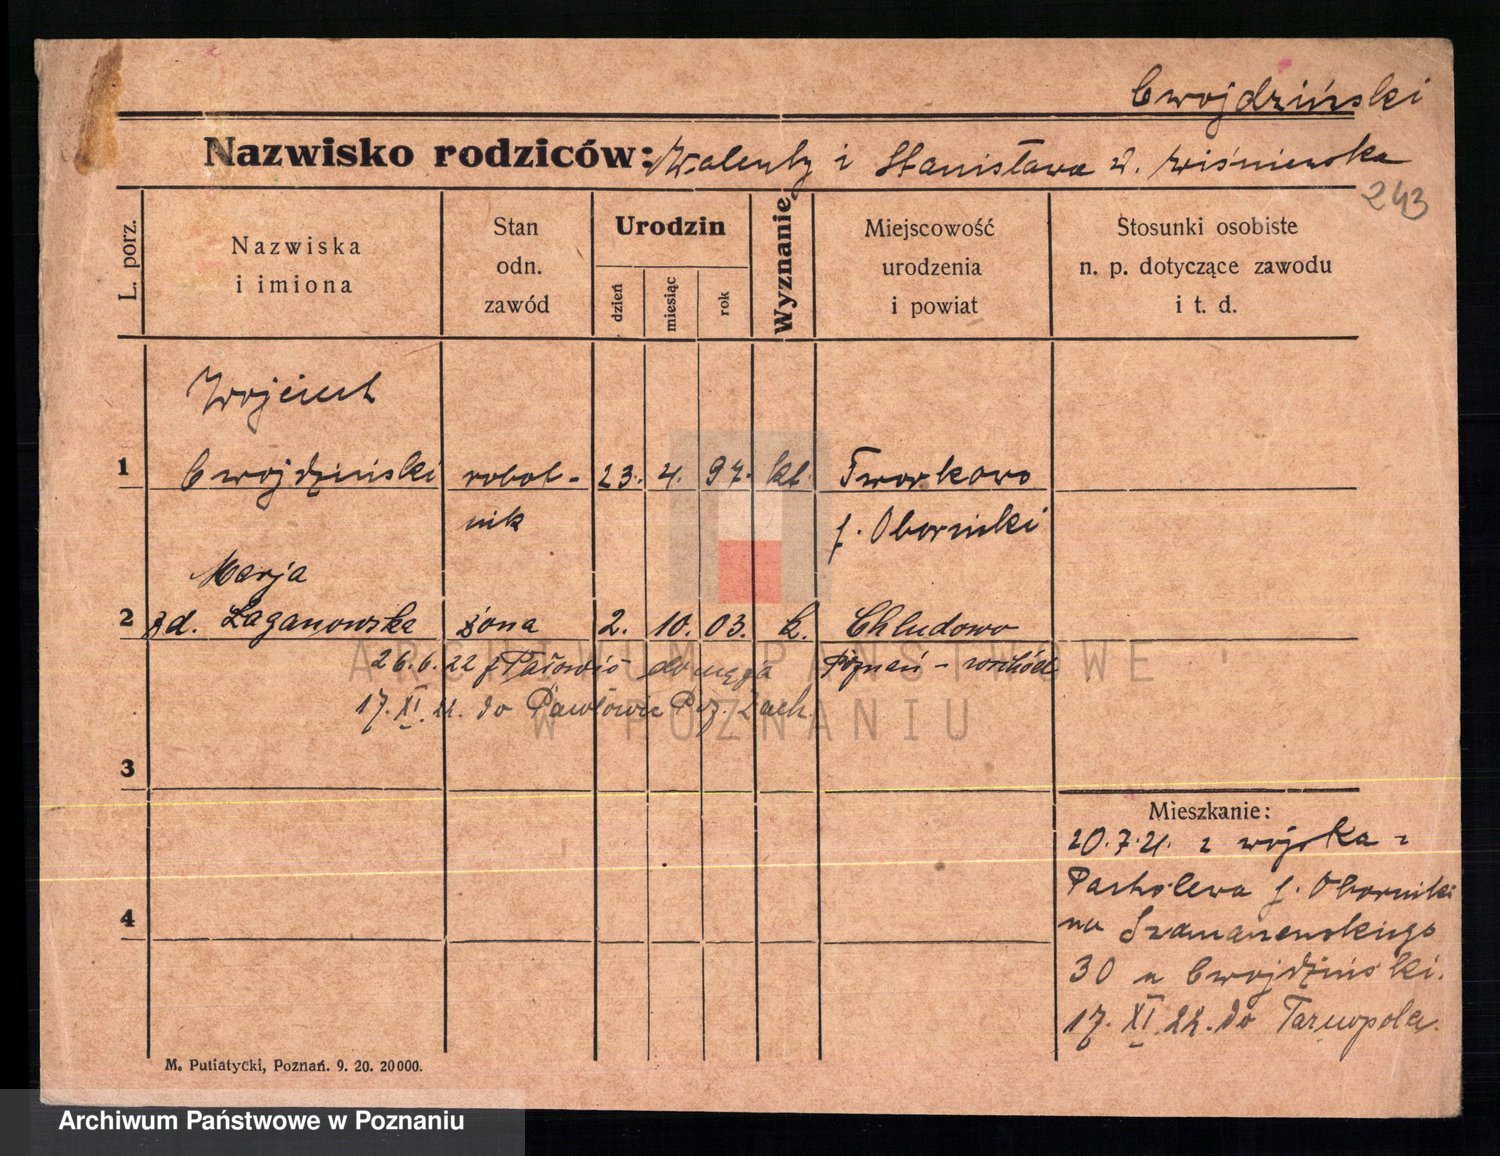 Cwojdziński
Nazwisko rodziców: Walenty i Stanisława z. Wiśniewska
243
L. porz.
Nazwiska
i imiona
Stan
odn.
zawód
Urodzin
dzień
miesiąc
rok
Wyznanie
Miejscowość
urodzenia
i powiat
Stosunki osobiste
n. p. dotyczące zawodu
i t. d.
Wojciech
1 Cwojdziński robot- 23. 4. 97. kt. Tworkowo
nik p. Oborniki
Marja
2 zd. Łaganowska żona 2. 10. 03. k. Chludowo
26.6.22 z do męża Poznań - wschód
17. XI. 22. do Pawłowic Poz. Zach.
3
Mieszkanie:
20.7.21. z wojska -
p. Oborniki
4
na Szamarzewskiego
30 u Cwojdziński.
17. XI. 22. do Tarnopola.
M. Putiatycki, Poznań. 9. 20. 20000.
ARCHIWUM PAŃSTWOWE
W POZNANIU
Archiwum Państwowe w Poznaniu